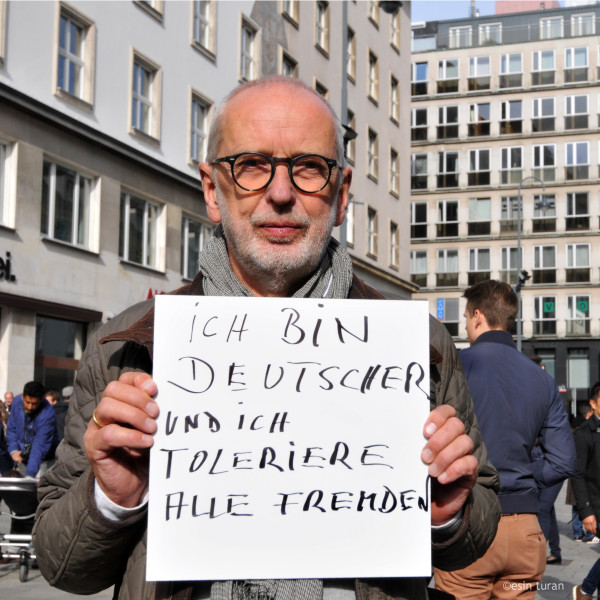 iCH BiN
DEUTSCHER
UND iCH
TOLERiERE
ALLE FREMDEN
ei.
©esin turan